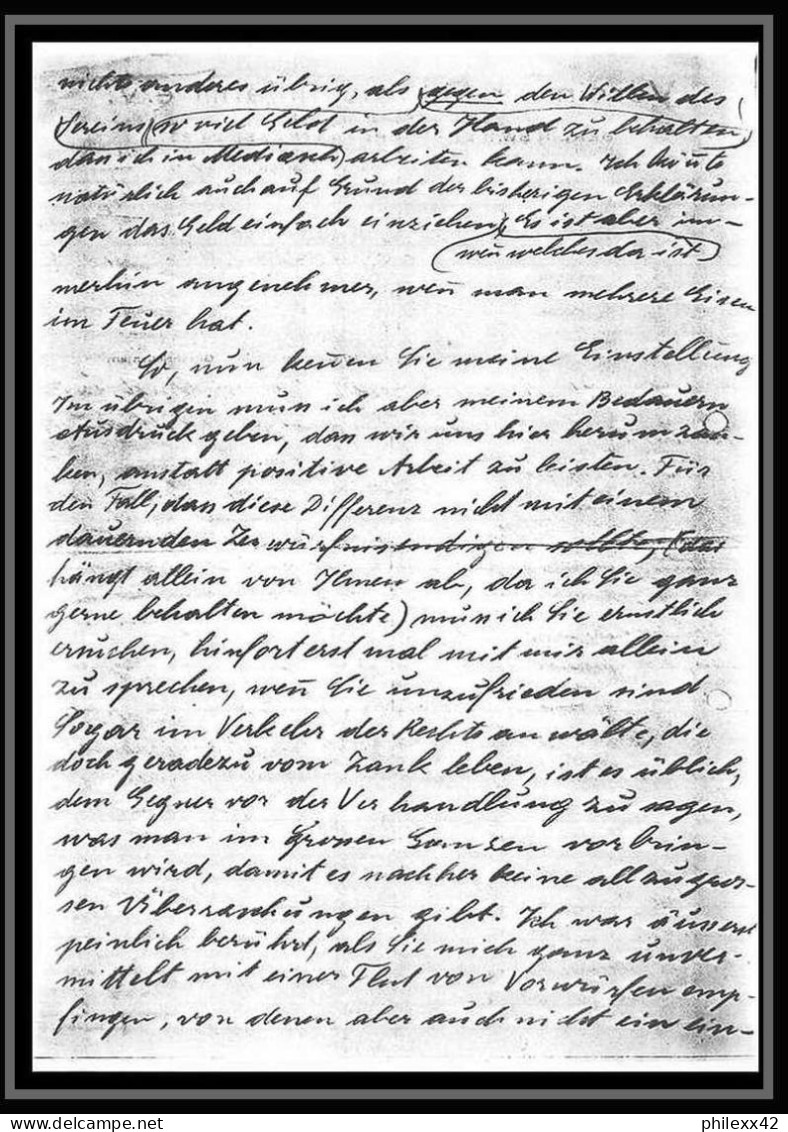 nichts anderes übrig, als (gegen den Willen des
Vereins) (so viel Geld in der Hand zu behalten,
dass ich in Mediasch) arbeiten kann. Ich könnte
natürlich auch auf Grund der bisherigen Erklärun-
gen das Geld einfach einziehen, Es ist aber im-
(wen̄ welches da ist)
merhin angenehmer, wen̄ man mehrere Eisen
im Feuer hat.
So, nun ken̄en Sie meine Einstellung
Im übrigen muss ich aber meinem Bedauern
Ausdruck geben, dass wir uns hier herumzan-
ken, anstatt positive Arbeit zu leisten. Für
den Fall, dass diese Differenz nicht mit einem
dauernden Zerwürfnis endigen sollte, (das
hängt allein von Ihnen ab, da ich Sie ganz
gerne behalten möchte) muss ich Sie ernstlich
ersuchen, hinfort erst mal mit mir allein
zu sprechen, wen̄ Sie unzufrieden sind
Sogar im Verkehr der Rechtsanwälte, die
doch geradezu vom Zank leben, ist es üblich,
dem Gegner vor der Verhandlung zu sagen,
was man im Grossen Ganzen vorbrin-
gen wird, damit es nachher keine allzugros-
sen Überraschungen gibt. Ich war äusserst
peinlich berührt, als Sie mich ganz unver-
mittelt mit einer Flut von Vorwürfen emp-
fingen, von denen aber auch nicht ein ein-
delcampe.net
philexx42